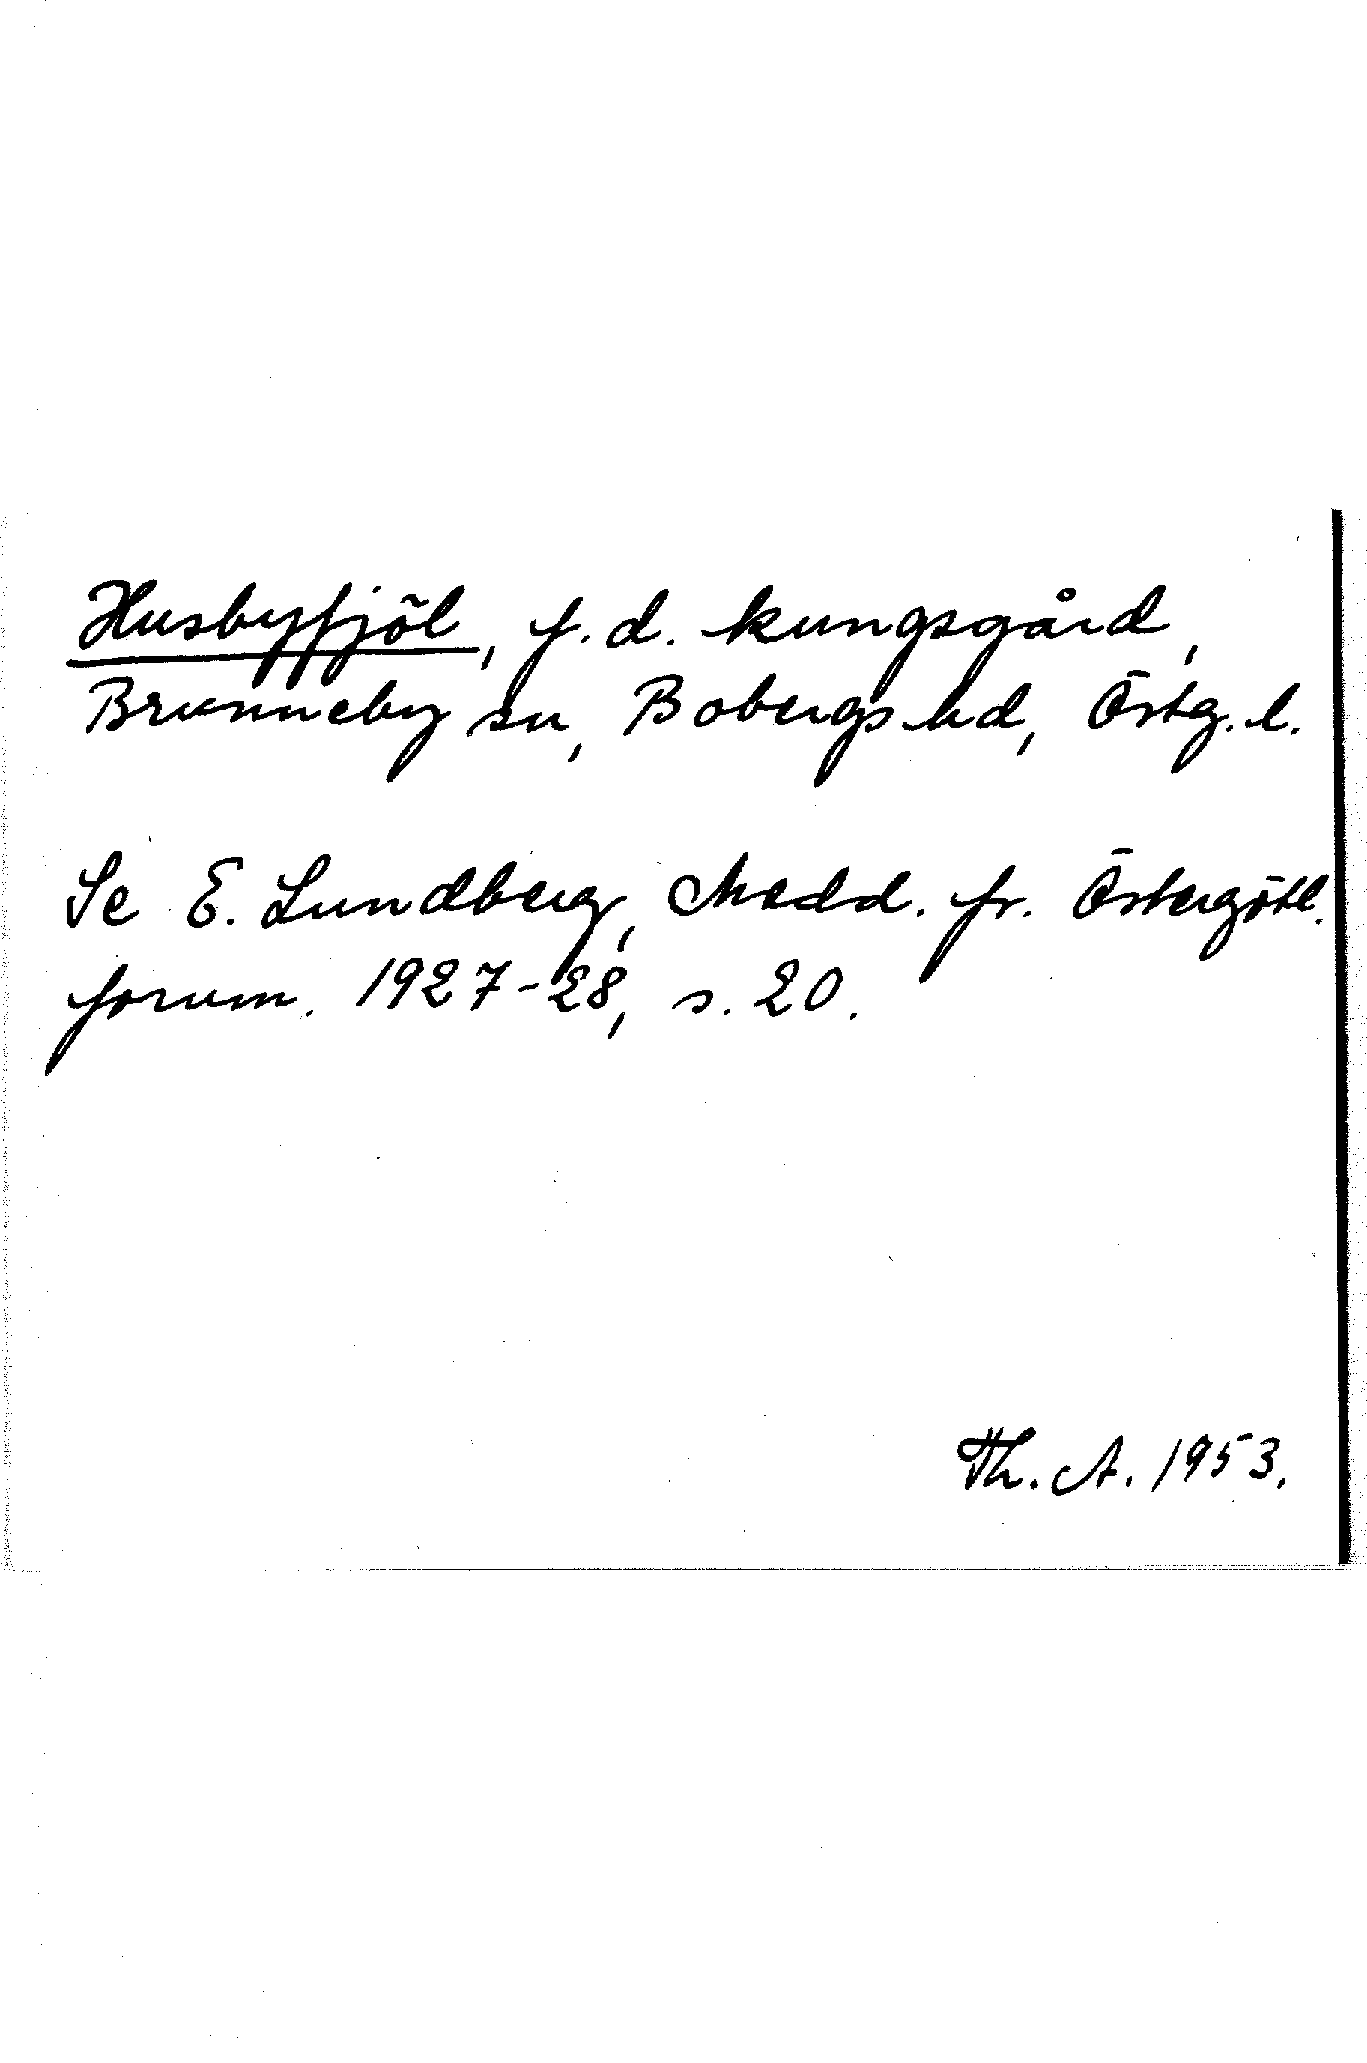 Husbyfjöl, f.d. kungsgård,
Brunneby sn, Bobergs hd, Östg. l.
Se E. Lundberg, Medd. fr. Östergötl.
fornm. 1927-28, s. 20.
Th. A. 1953.